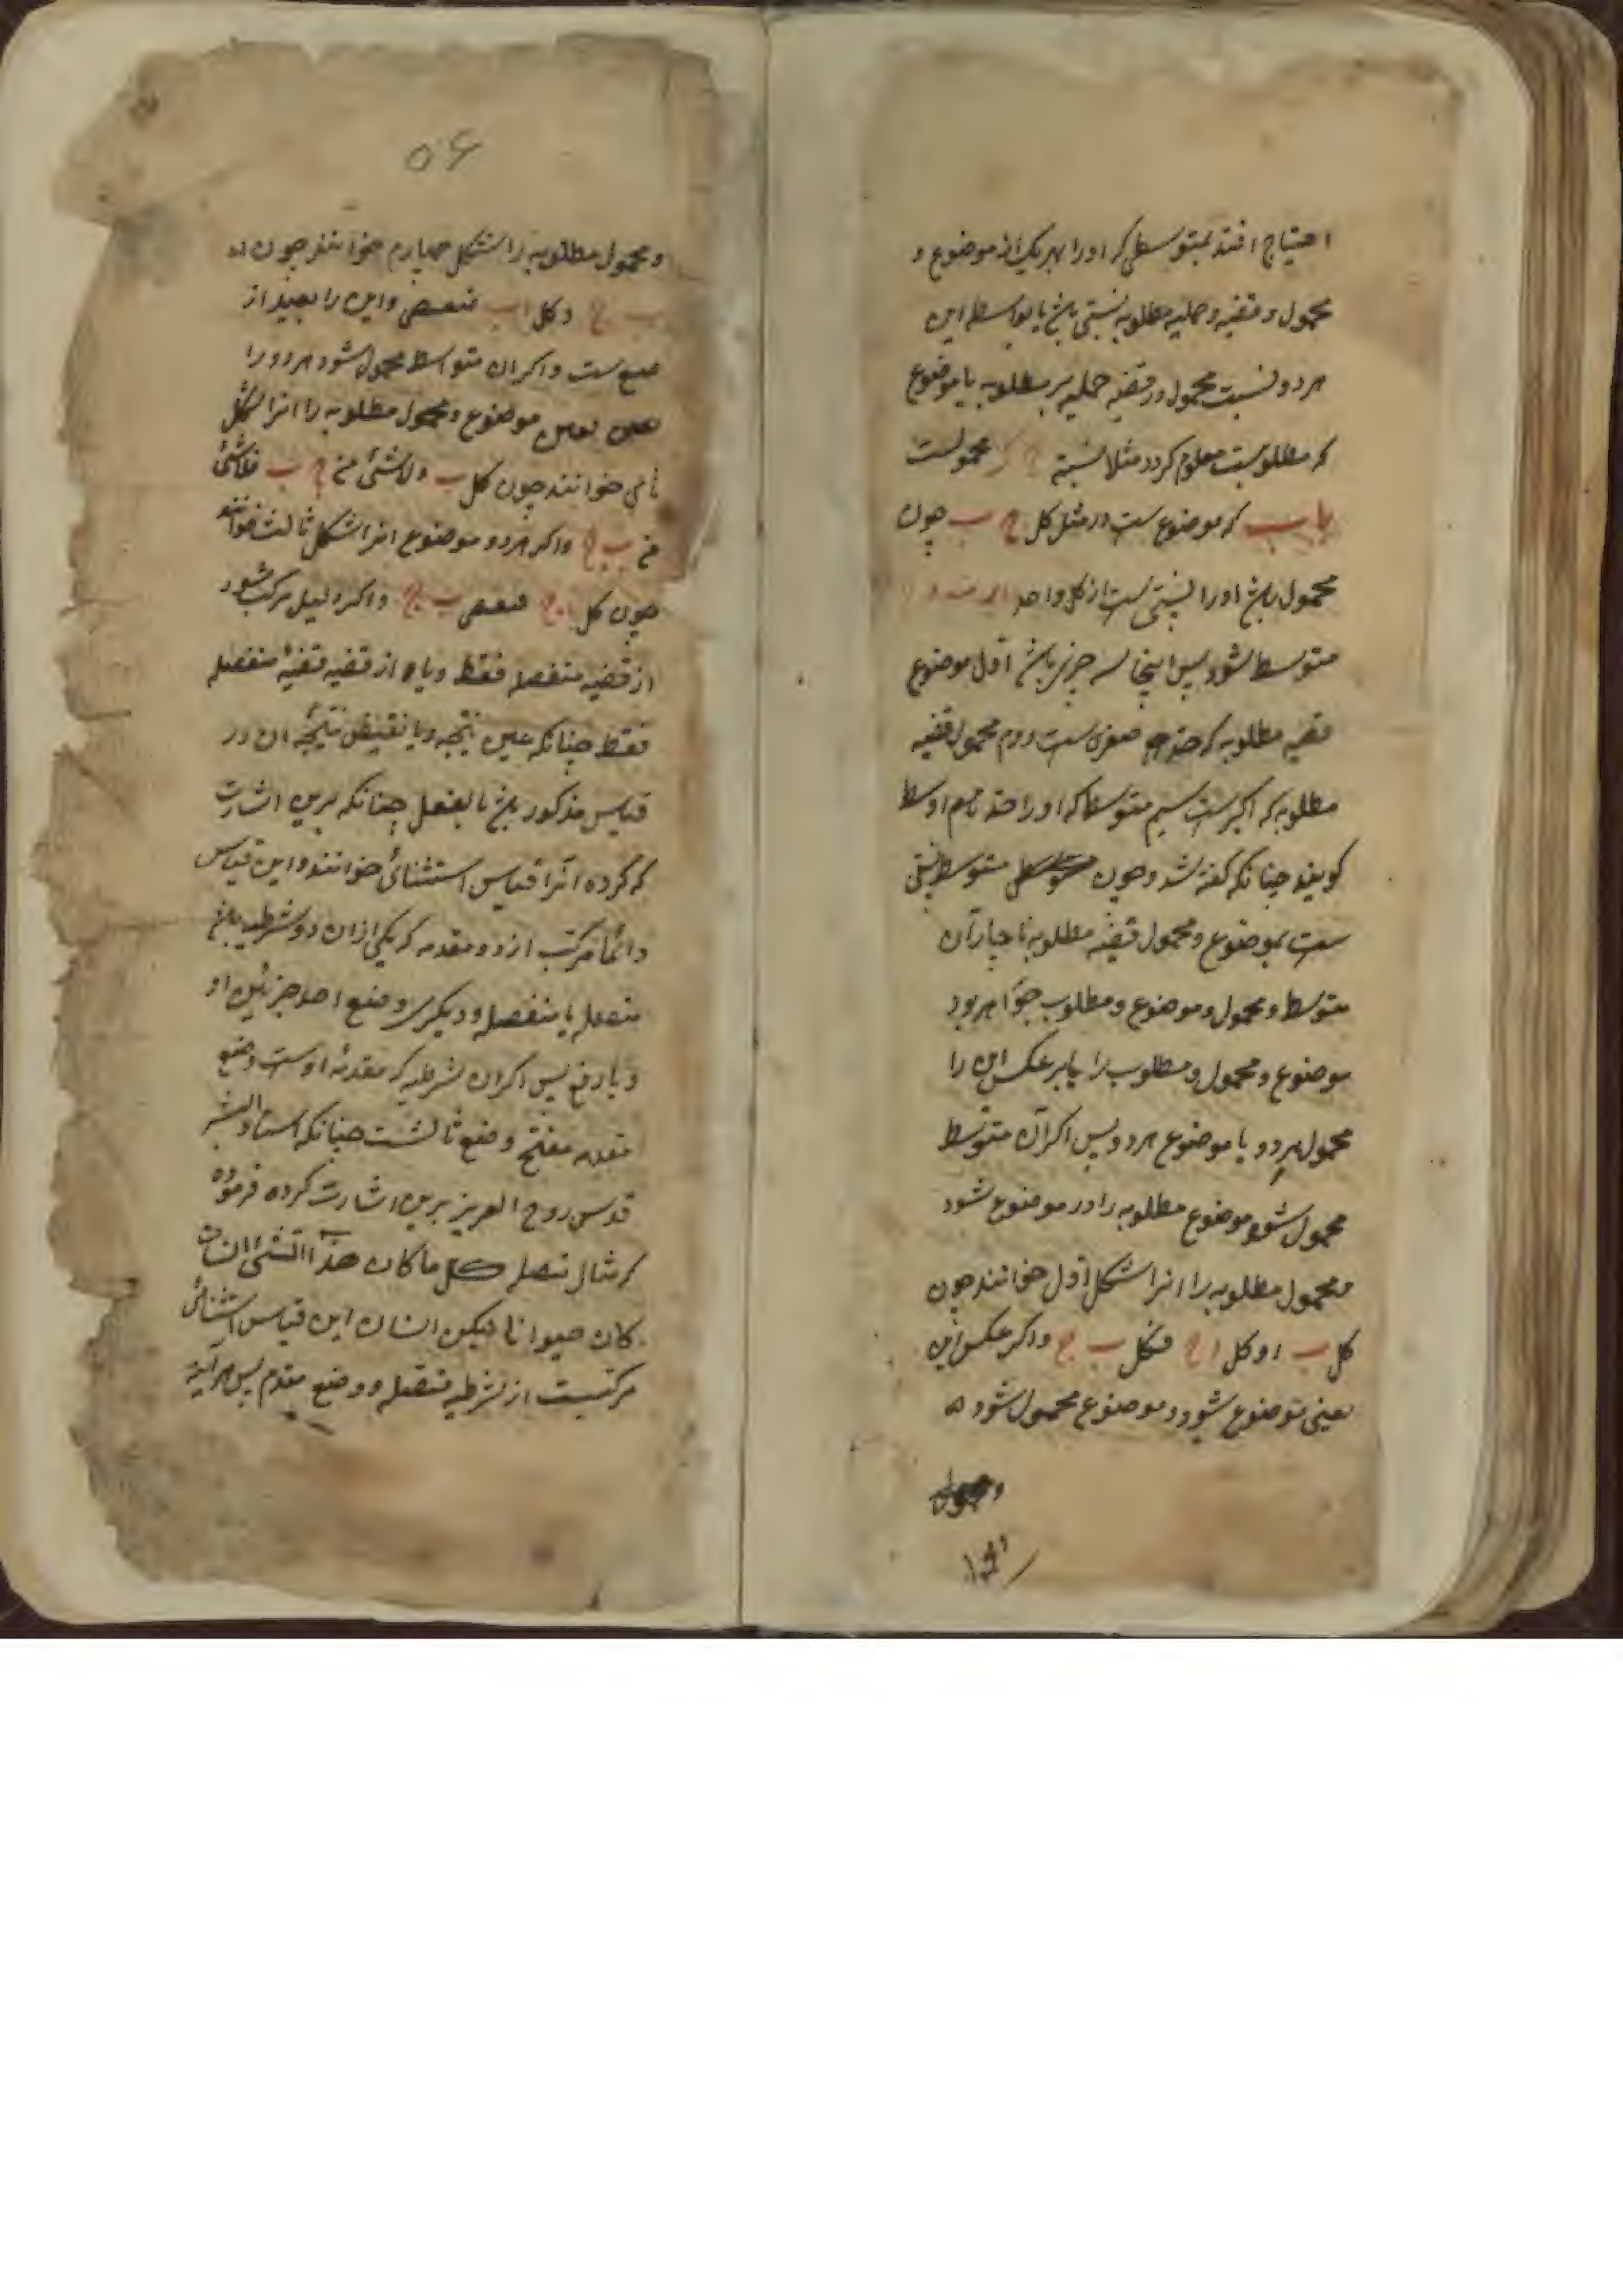 احتیاج افتد بمتوسطی که او را بهر یک از موضوع و
محمول و قضیه و حملیه مطلوبه نسبتی باشد تا بواسطه این
هر دو نسبت محمول در قضیه حملیه بر مطلوبه با موضوع
که مطلوبست معلوم کردد مثلا نسبة ج که محمولست
با ب که موضوع ست در مثل کل ج ب چون
محمول باشد او را نسبتی ست از کل واحد
متوسط شود پس اینجا سه چیزی باشد اول موضوع
قضیه مطلوبه که حد صغری ست دوم محمول قضیه
مطلوبه که اکبرست سیم متوسط که او را حد نام اوسط
کویند چنانکه کفته شد و چون متوسط نسبتی
ست بموضوع و محمول قضیه مطلوبه ناچار آن
متوسط و محمول و موضوع و مطلوب خواهر بود
موضوع و محمول و مطلوب را یا بر عکس این را
محمول هر دو یا موضوع هر دو پس اکر آن متوسط
محمول شود موضوع مطلوبه را و در موضوع شود
و محمول مطلوبه را انرا شکل اول خوانند چون
کل ب ا و کل ا ج فکل ب ج و اکر عکس این
یعنی موضوع شود و موضوع محمول شود
و محمول
۵۶
و محمول مطلوبه را شکل چهارم خوانند چون
ب ج و کل ا ب فبعض و این را بعید از
طبع ست و اکر ان متواسط محمول شود هر دو را
موضوع و محمول مطلوبه را انرا شکل
ثانی خوانند چون کل ب و لاشئ من ج ب فلاشئ
من ب ج و اکر هر دو موضوع انرا شکل ثالث خوانند
چون کل ج فبعض ب ج و اکر دلیل مرکب شود
از قضیه منفصله فقط و یا از قضیه قضیهٔ منفصله
فقط چنانکه عین نتیجه و یا نقیض نتیجه ان در
قیاس مذکور باشد بالفعل چنانکه برین اشارت
که کرده آنرا قیاس استثنائی خوانند و این قیاس
دائماً مرکب از دو مقدمه که یکی ازان دو شرطیه باشد
متصله یا منفصله و دیکری وضع احد جزئین او
و یا رفع پس اکر ان شرطیه که مقدمهٔ اوست وضع
مقدم منتج وضع ثالثست چنانکه استاد البشر
قدس روح العزیز برین اشارت کرده فرموده
که مثال متصله کل ما کان هذا الشئ انسان
کان حیوانا لیکن انسان این قیاس استثنائی
مرکبست از شرطیه متصله و وضع مقدم پس هر آینه